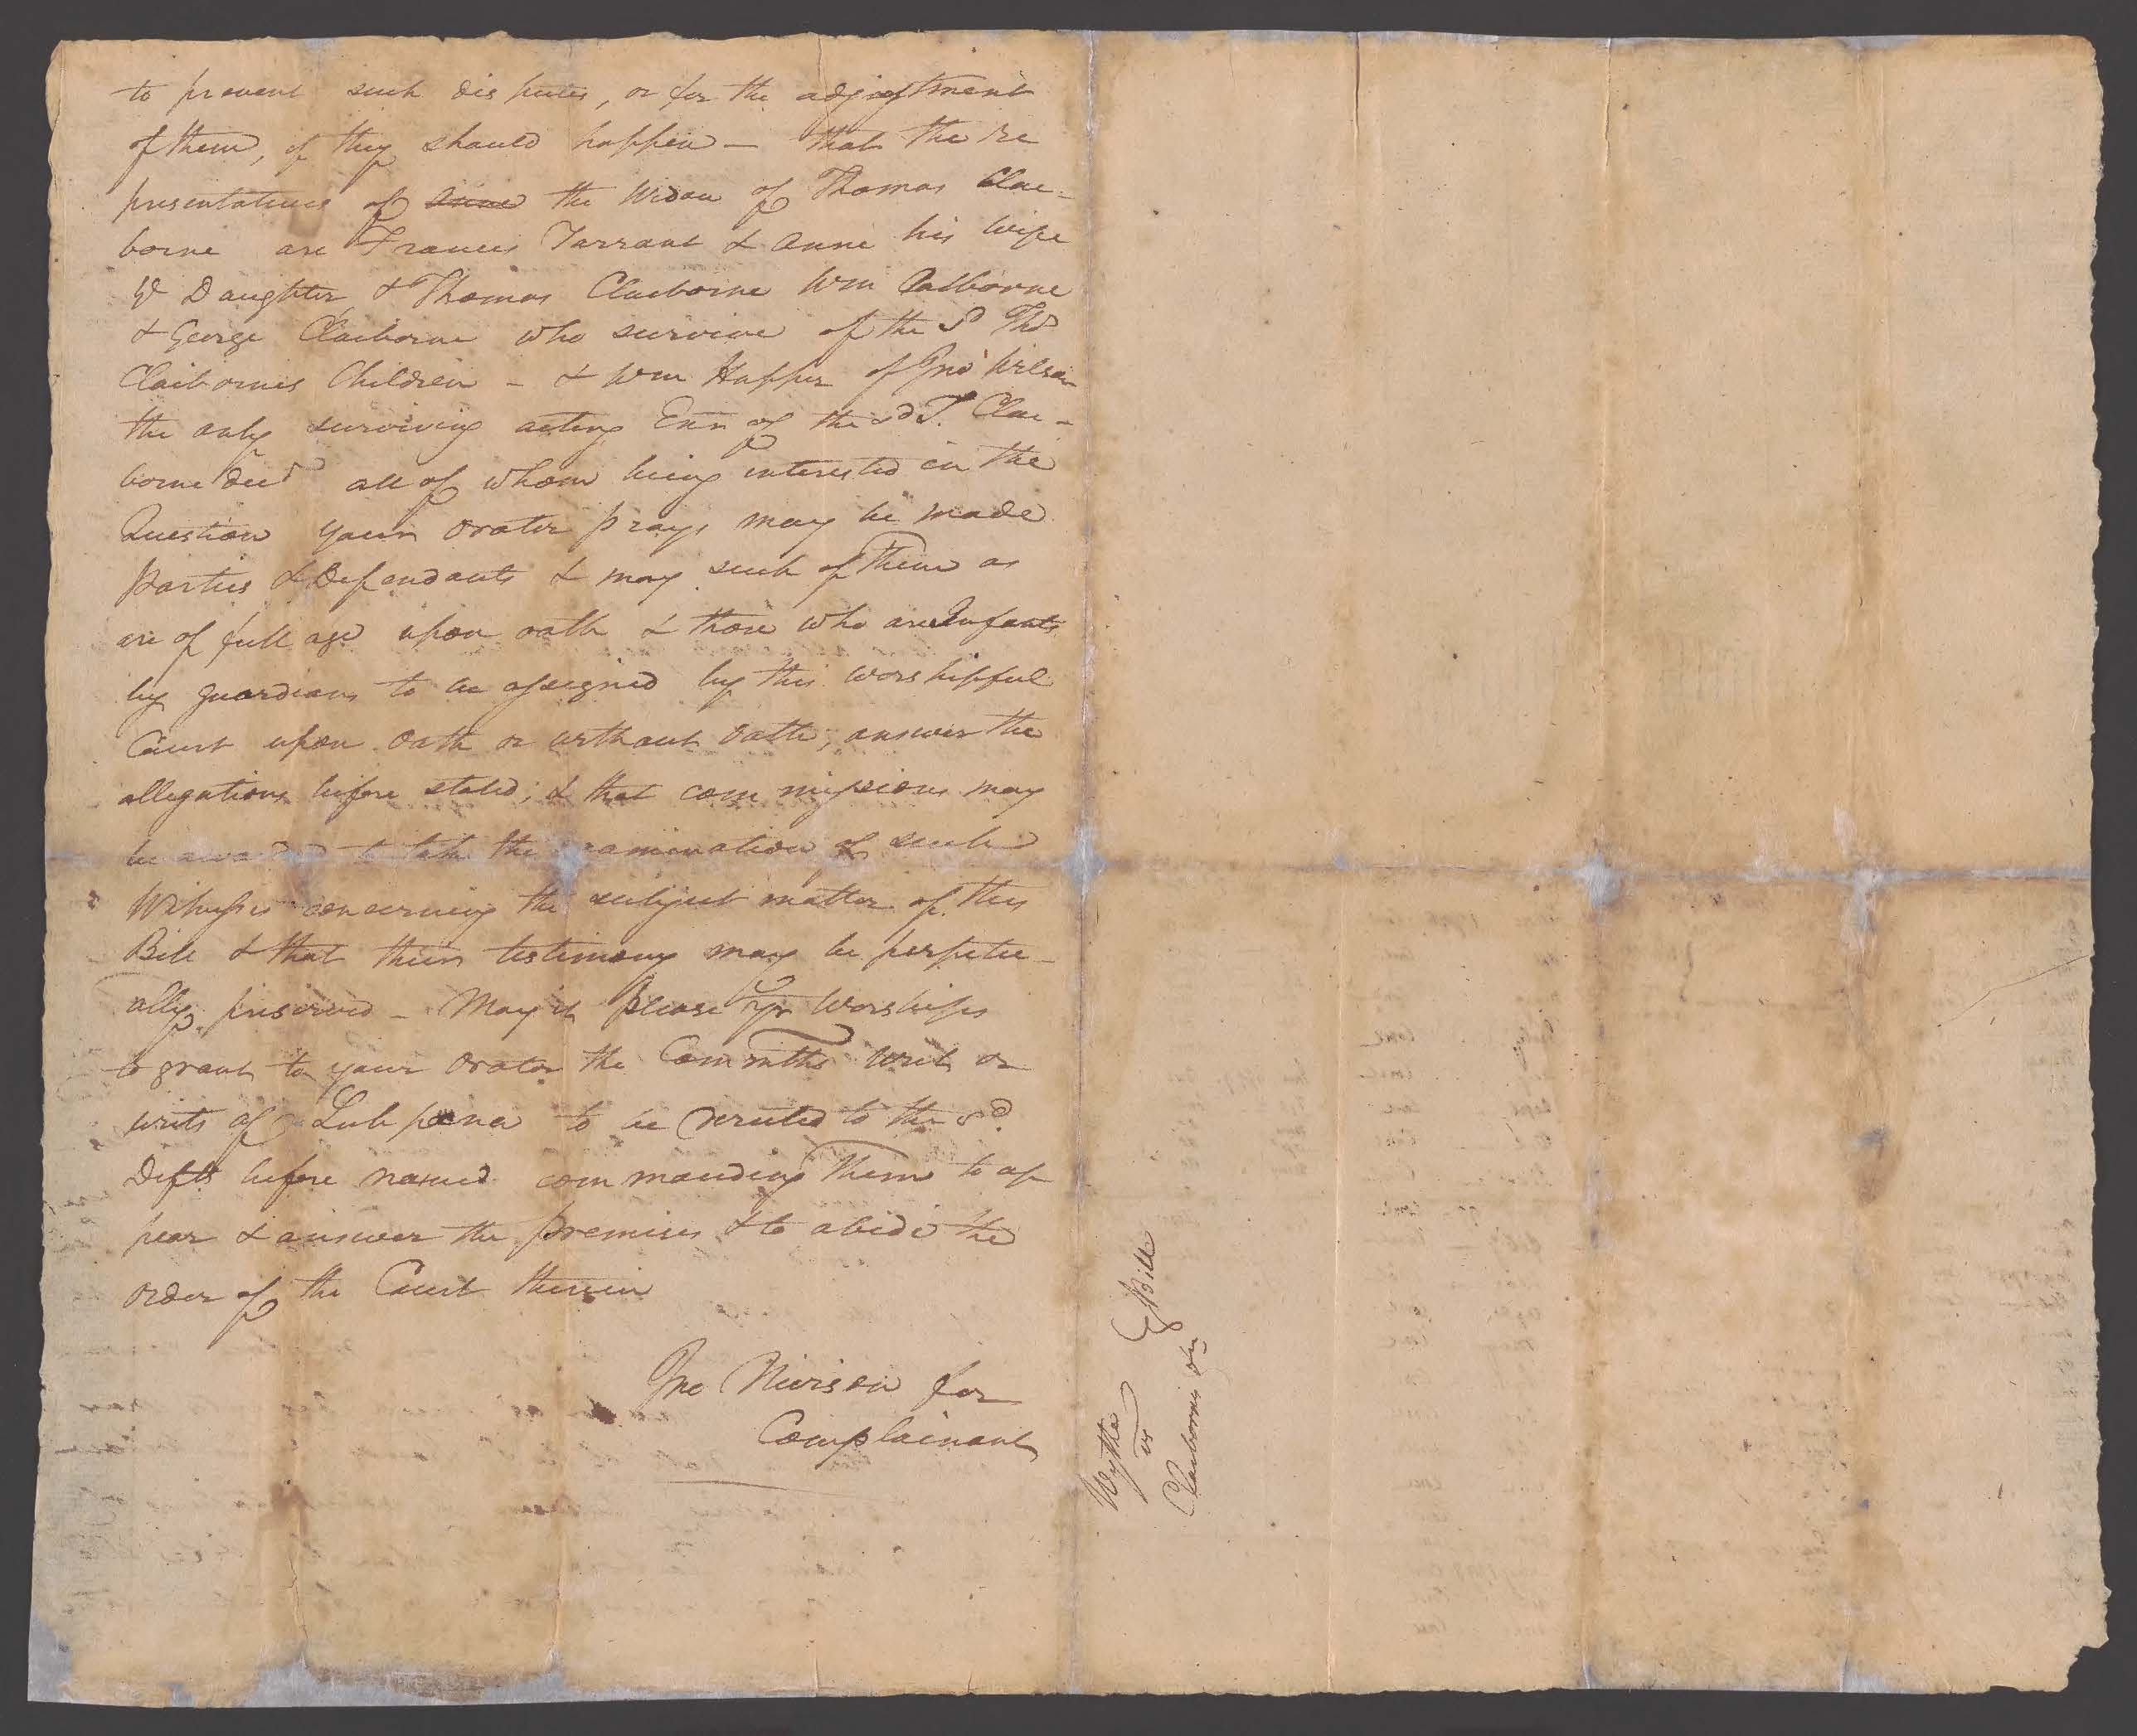 to prevent such disputes, or for the adjustment
of them, if they should happen — that the re
presentatives of the Widow of Thomas Clai-
borne are Francis Tarrant & Anne his wife
& Thomas Claiborne Wm Calborne
& George Claiborne who survive of the Sd Thos
Claibornes Children — & Wm Happer of Jno Wilson
the only surviving acting Exr of the sd T. Clai-
borne decd all of whom being interested in the
Question your Orator prays may be made
Parties & Defendants & may such of them as
are of full age upon oath & those who are Infants
by guardians to be assigned by this worshipful
Court upon Oath or without Oath, answer the
allegations before stated; & that commissions may
be awarded to take the examination of such
Witnesses concerning the subject matter of this
Bill & that their testimony may be perpetu-
ally preserved — May it please yr Worships
to grant to your Orator the Commths Writ or
writs of Subpœna to be directed to the sd
Defts before named commanding them to ap
pear & answer the premises & to abide the
order of the Court therein
Jno Nivison for
Complainant
Wythe
vs
Claibornes
Bill